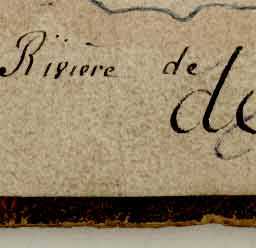 Rivière de
de